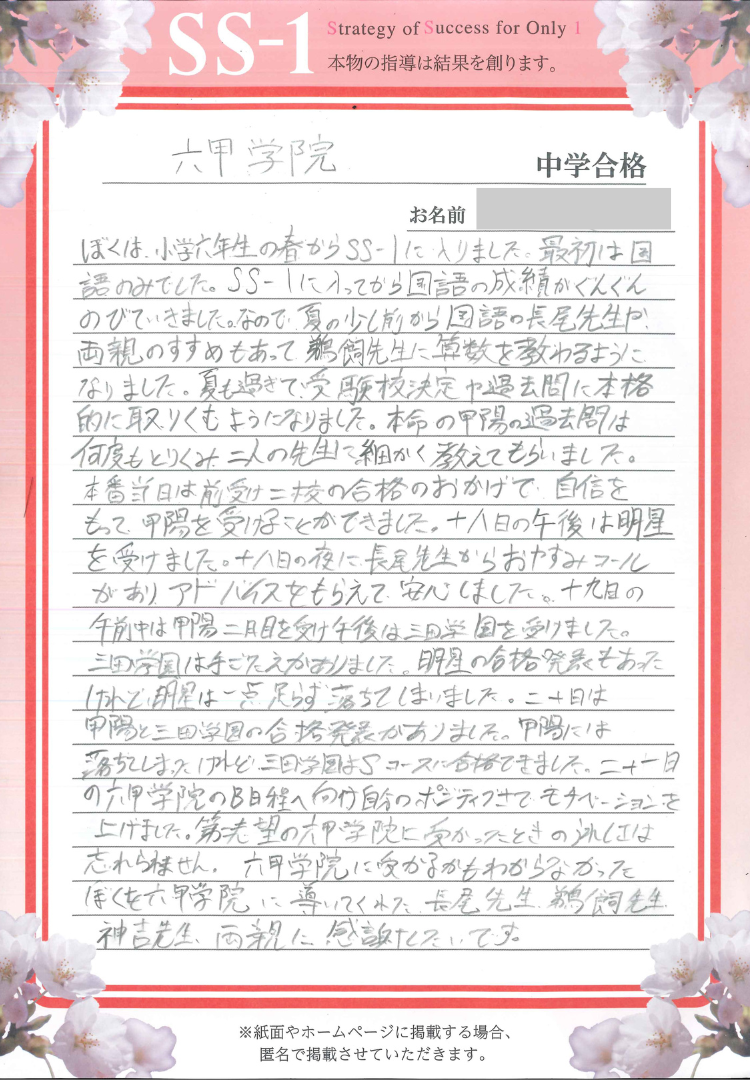 SS-1
Strategy of Success for Only 1
本物の指導は結果を創ります。
六甲学院
中学合格
お名前
ぼくは、小学六年生の春からSS-1に入りました。最初は国
語のみでした。SS-1に入ってから国語の成績がぐんぐん
のびていきました。なので、夏の少し前から国語の長尾先生や、
両親のすすめもあって、鵜飼先生に算数を教わるように
なりました。夏も過ぎて、受験校決定や過去問に本格
的に取りくむようになりました。本命の甲陽の過去問は
何度もとりくみ、二人の先生に細かく教えてもらいました。
本番当日は前受け二校の合格のおかげで、自信を
もって、甲陽を受けることができました。十八日の午後は明星
を受けました。十八日の夜に、長尾先生からおやすみコール
があり、アドバイスをもらえて、安心しました。十九日の
午前中は甲陽二日目を受け午後は三田学園を受けました。
三田学園は手ごたえがありました。明星の合格発表もあった
けれど、明星は一点足らず落ちてしまいました。二十日は
甲陽と三田学園の合格発表がありました。甲陽には
落ちてしまったけれど、三田学園はSコースに合格できました。二十一日
の六甲学院のB日程へ向け自分のポジティブさで、モチベーションを
上げました。第二志望の六甲学院に受かったときの泳しさは
忘れられません。六甲学院に受かるかもわからなかった
ぼくを六甲学院に導いてくれた、長尾先生、鵜飼先生、
神吉先生、両親に感謝したいです。
※紙面やホームページに掲載する場合、
匿名で掲載させていただきます。